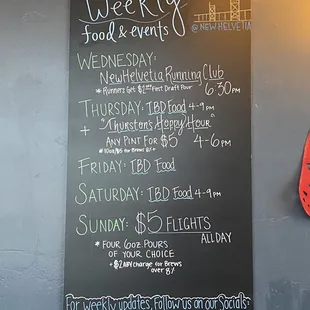 Weekly
food & events
@NEWHELVETIA
WEDNESDAY:
NewHelvetia Running Club
* Runners Get $2 First Draft Pour
6:30PM
THURSDAY: TBD Food 4-9PM
+ "Thurston's Hoppy Hour"
ANY PINT FOR $5 4-6PM
FRIDAY: TBD Food
SATURDAY: TBD Food 4-9PM
SUNDAY: $5 FLIGHTS
ALL DAY
* FOUR 6oz. POURS
OF YOUR CHOICE
+ $2 charge for Brews
over 8%
For weekly updates, Follow us on our Socials